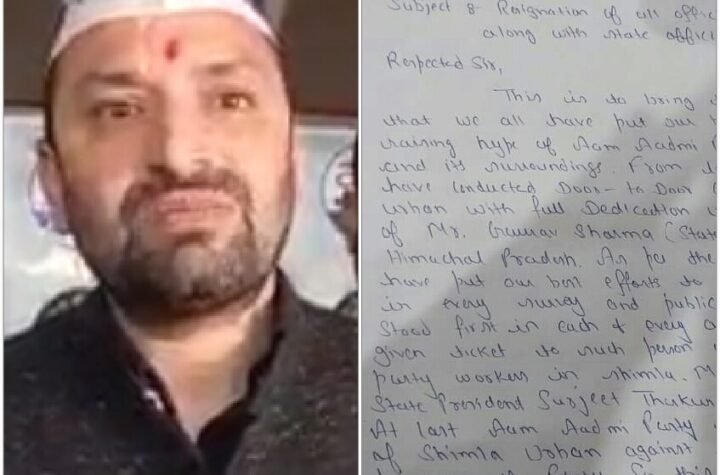 Subject :- Resignation of all offic
along with state offici
Respected Sir,
This is to bring
that we all have put our
raising hype of Aam Aadmi
and its surroundings. From
have conducted Door-to Door
Urban with full Dedication
of Mr. Gaurav Sharma (State
Himachal Pradesh. As per the
have put our best efforts to
in every survey and public
Stood first in each & every
given ticket to such person
party workers in Shimla. M
State President Surjeet Thakur
At last Aam Aadmi Party
of Shimla Urban against